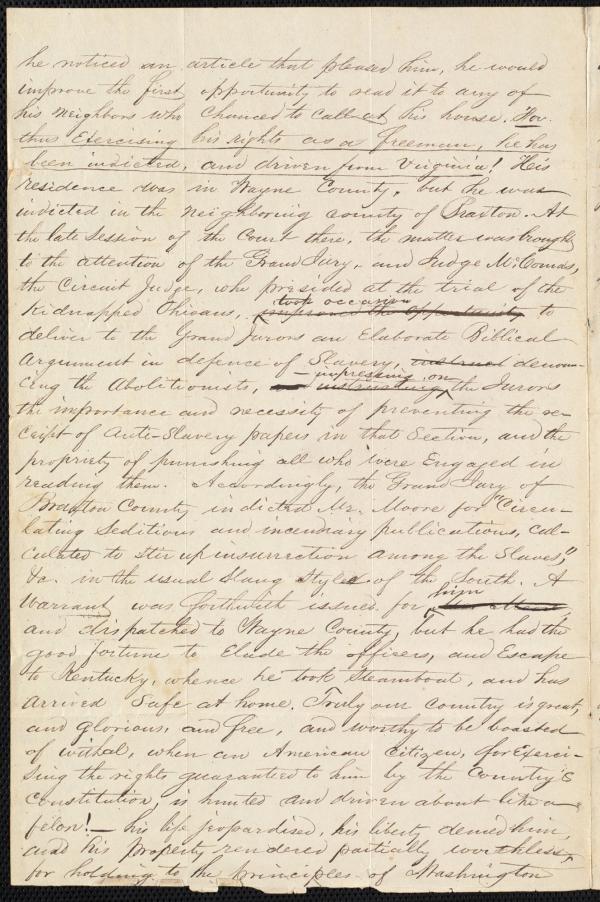 he noticed an article that pleased him, he would
improve the first opportunity to read it to any of
his neighbors who chanced to call at his house. For
thus Exercising his rights as a freeman, he has
been indicted, and driven from Virginia! His
residence was in Wayne County, but he was
indicted in the neighboring county of Braxton. At
the late Session of the Court there, the matter was brought
to the attention of the Grand Jury, and Judge McComas,
the Circuit Judge, who presided at the trial of the
took occasion
Kidnapped Ohioans, improved the opportunity to
deliver to the Grand Jurors an Elaborate Biblical
Argument in defence of Slavery, instruct denoun-
impressing on
cing the Abolitionists, and instructing the Jurors
the importance and necessity of preventing the re-
ceipt of Anti-Slavery papers in that Section, and the
propriety of punishing all who were Engaged in
reading them. Accordingly, the Grand Jury of
Braxton County indicted Mr. Moore for "Circu-
lating Seditious and incendiary publications, cal-
culated to stir up insurrection among the Slaves,"
&c. in the usual Slang Style of the South. A
him
Warrant was forthwith issued for
and dispatched to Wayne County, but he had the
good fortune to Elude the officers, and Escape
to Kentucky, whence he took Steamboat, and has
arrived Safe at home. Truly our Country is great,
and glorious, and free, and worthy to be boasted
of withal, when an American Citizen, for Exerci-
sing the rights guaranteed to him by the Country's
Constitution, is hunted and driven about like a
felon! — his life jeopardised, his liberty denied him,
and his property rendered partially worthless,
for holding to the principles of Washington